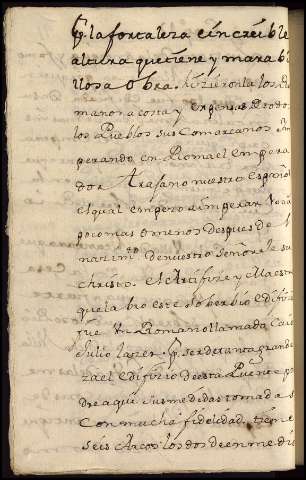 q̃. la fortaleza e increible
altura que tiene y marabi
llosa Obra. hizieronla los Ro
manos a costa y expensas de todos
los Pueblos sus Comarcanos Im
perando en Roma el empera
dor Trajano nuestro Español
el qual empeço a imperar
poco mas o menos despues de l
naçim.to de nuestro Señor Je su
christo. el Artifize y Maestro
que labro este soberbio edifiçi
fue Vn Romano llamado Caio
Julio laçer. q̃. ser de tanta grande
za el edifiçio de esta Puente po
dre aqui sus medidas tomadas
Con mucha fidelidad. tiene
seis Arcos los dos de en medio